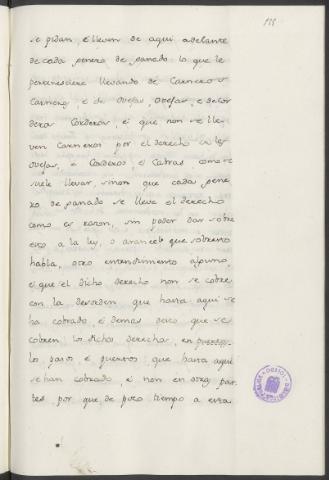 188
se pidan, é lleven de aquí adelante
de cada genero de ganado lo que le
perteneciere llevando de Carneros
Carnero, é de ovejas, ovejas, é de Cor
deros Corderos, é que non se lle
ven Carneros por el derecho de las
ovejas, é Corderos, é Cabras como se
suele llevar, sinon que cada gene
ro de ganado se lleve el derecho
como es razon, sin poder dar sobre
esto a la ley, o arancel que sobresto
habla, otro entendimiento alguno,
é que el dicho derecho non se cobre
con la desorden que hasta aqui se
ha cobrado, é demas desto que se
cobren los dichos derechos, en
los pasos é puertos que hasta aqui
se han cobrado, é non en otras par
tes por que de poco tiempo a esta